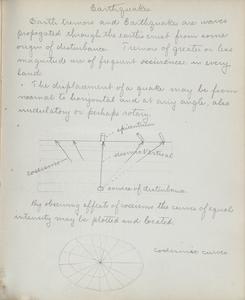 Earthquakes
Earth tremors and Earthquakes are waves
propagated through the earths crust from some
origin of disturbance. Tremors of greater or less
magnitude are of frequent occurence in every
land.
The displacement of a quake may be from
normal to horizontal and at any angle, also
undulatory or perhaps rotary.
epicentrum
seismic vertical
coseismic
source of disturbance
By observing effects of coseisms the curves of equal
intensity may be plotted and located.
coseismic curves